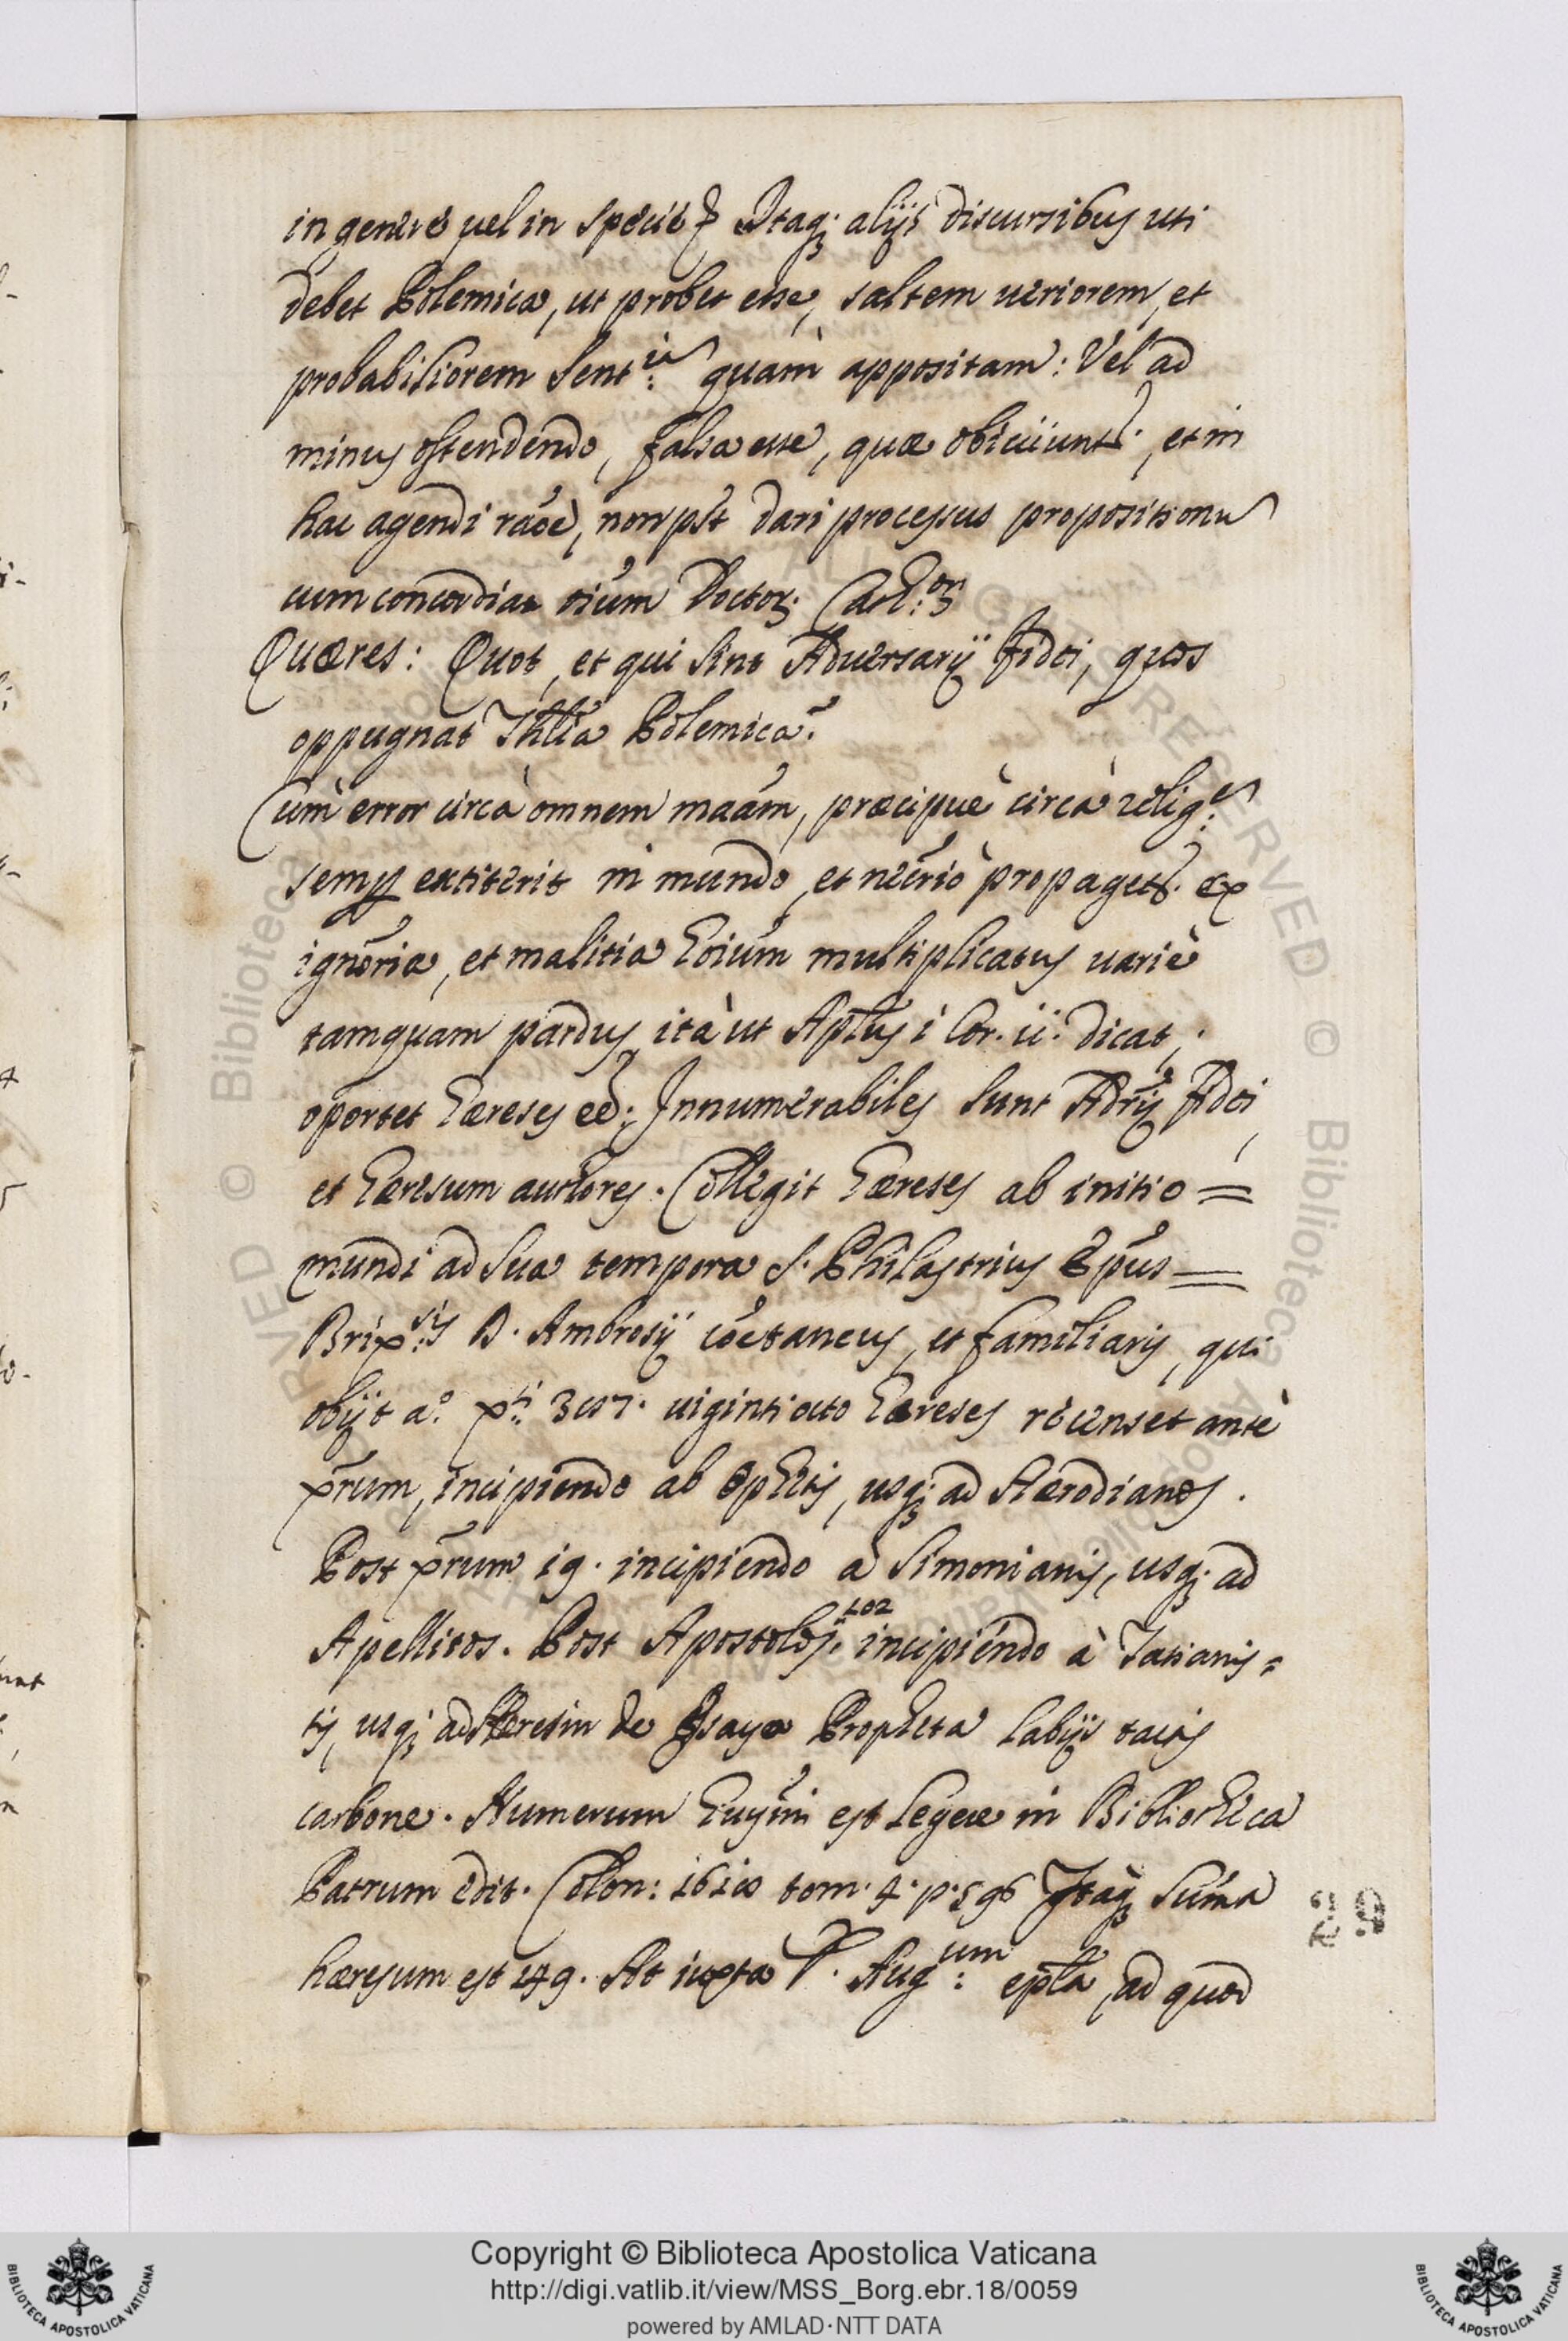 in genere vel in specie? Itaq; alijs discursibus uti
debet Polemica, ut probet esse, saltem ueriorem, et
probabiliorem Sent:ia quàm appositam: Vel ad
minus ostendendo, falsa esse, quæ obiiciunt.r, et in
hac agendi raõe, non pt dari processus propositionu
cum concordia oium Doctor. Cath:or
Quæres: Quot, et qui sint Aduersarij fidei, quos
oppugnat Thlia Polemica?
Cùm error circà omnem maam, præcipuè circà relig:
semp extiterit in mundo, et necrio propaget. ex
ignoria, et malitia hoium multiplicatus uariè
tamquam pardus ità ut Aplus i Cor. ii. dicat,
oportet hæreses ee: Innumerabiles sunt Adrij fidei,
et hæresum authores. Collegit hæreses ab initio =
mundi ad sua tempora S. Philastrius Epus =
Brix:sis D. Ambrosij coetaneus, et familiaris, qui
obijt a.o xti 387. uiginti octo hæreses recenset antè
xrum, incipiendo ab Ophitis, usq; ad Hærodianos.
Post xrum 19. incipiendo à Simonianis, usq; ad
Apellitos. Post Apostolos. 102 incipiendo à Tatianis=
tis, usq; ad Hæresin de Isaya Propheta labijs tactis
carbone. Numerum huymi est legere in Bibliotheca
Patrum edit. Colon: 1618 tom. 4. p. 596 Itaq; Summa
hæresum est 149. At iuxta D. Aug:um epla, ad quod
29
Copyright © Biblioteca Apostolica Vaticana
http://digi.vatlib.it/view/MSS_Borg.ebr.18/0059
powered by AMLAD·NTT DATA
BIBLIOTECA APOSTOLICA VATICANA
BIBLIOTECA APOSTOLICA VATICANA